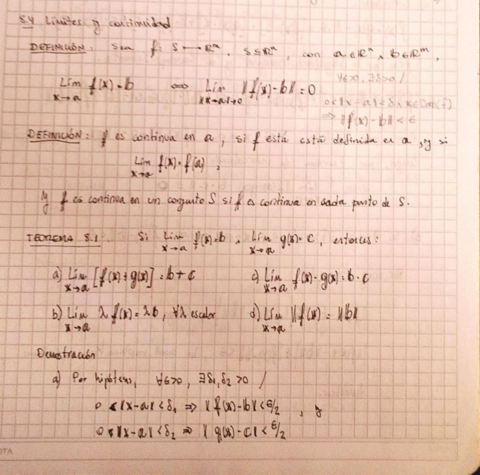 8.4 Límites y continuidad
DEFINICIÓN: Sea f: S → ℝᵐ, S ⊆ ℝⁿ, con a ∈ ℝⁿ, b ∈ ℝᵐ,
Lím x→a f(x) = b ⟺ Lím ‖x-a‖→0 ‖f(x)-b‖ = 0
∀ε>0, ∃δ>0 /
0<‖x-a‖<δ, x∈Dom(f)
⇒ ‖f(x)-b‖<ε
DEFINICIÓN: f es continua en a, si f está está definida en a, y si
Lím x→a f(x) = f(a),
y f es continua en un conjunto S si f es continua en cada punto de S.
TEOREMA 8.1. Si Lím x→a f(x) = b, Lím x→a g(x) = c, entonces:
a) Lím x→a [f(x)+g(x)] = b+c c) Lím x→a f(x)·g(x) = b·c
b) Lím x→a λ f(x) = λb, ∀λ escalar d) Lím x→a ‖f(x)‖ = ‖b‖
Demostración
a) Por hipótesis, ∀ε>0, ∃δ₁,δ₂>0 /
0<‖x-a‖<δ₁ ⇒ ‖f(x)-b‖<ε/2, y
0<‖x-a‖<δ₂ ⇒ ‖g(x)-c‖<ε/2